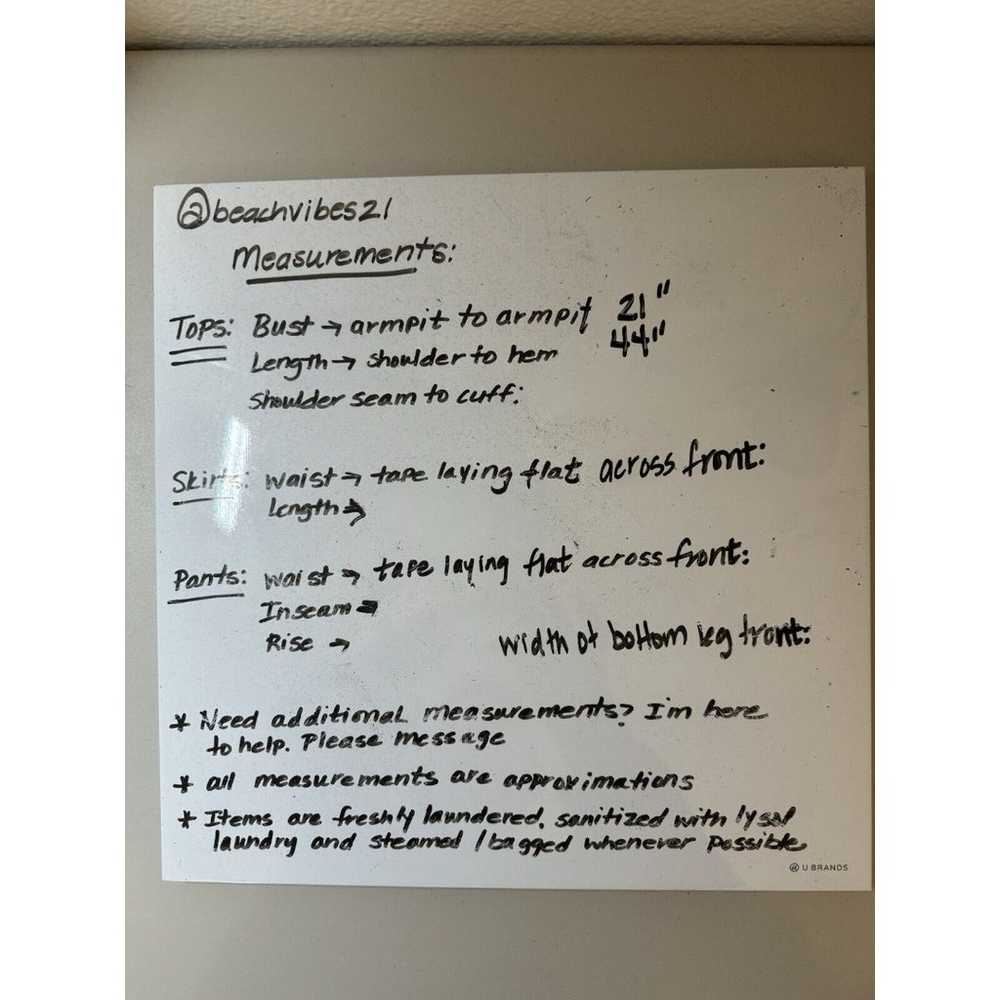 @beachvibes21
Measurements:
Tops: Bust → armpit to armpit 21"
Length → shoulder to hem 44"
Shoulder seam to cuff:
Skirts: waist → tape laying flat across front:
Length →
Pants: waist → tape laying flat across front:
Inseam →
Rise → width of bottom leg front:
* Need additional measurements? I'm here
to help. Please message
* all measurements are approximations
* Items are freshly laundered, sanitized with lysol
laundry and steamed / bagged whenever possible
U BRANDS